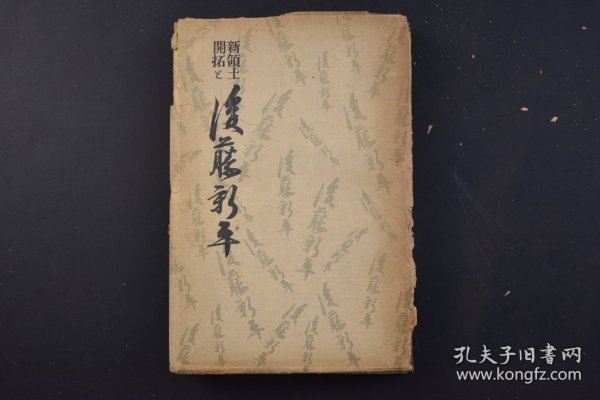 新領土
開拓と
後藤新平
孔夫子旧书网
www.kongfz.com